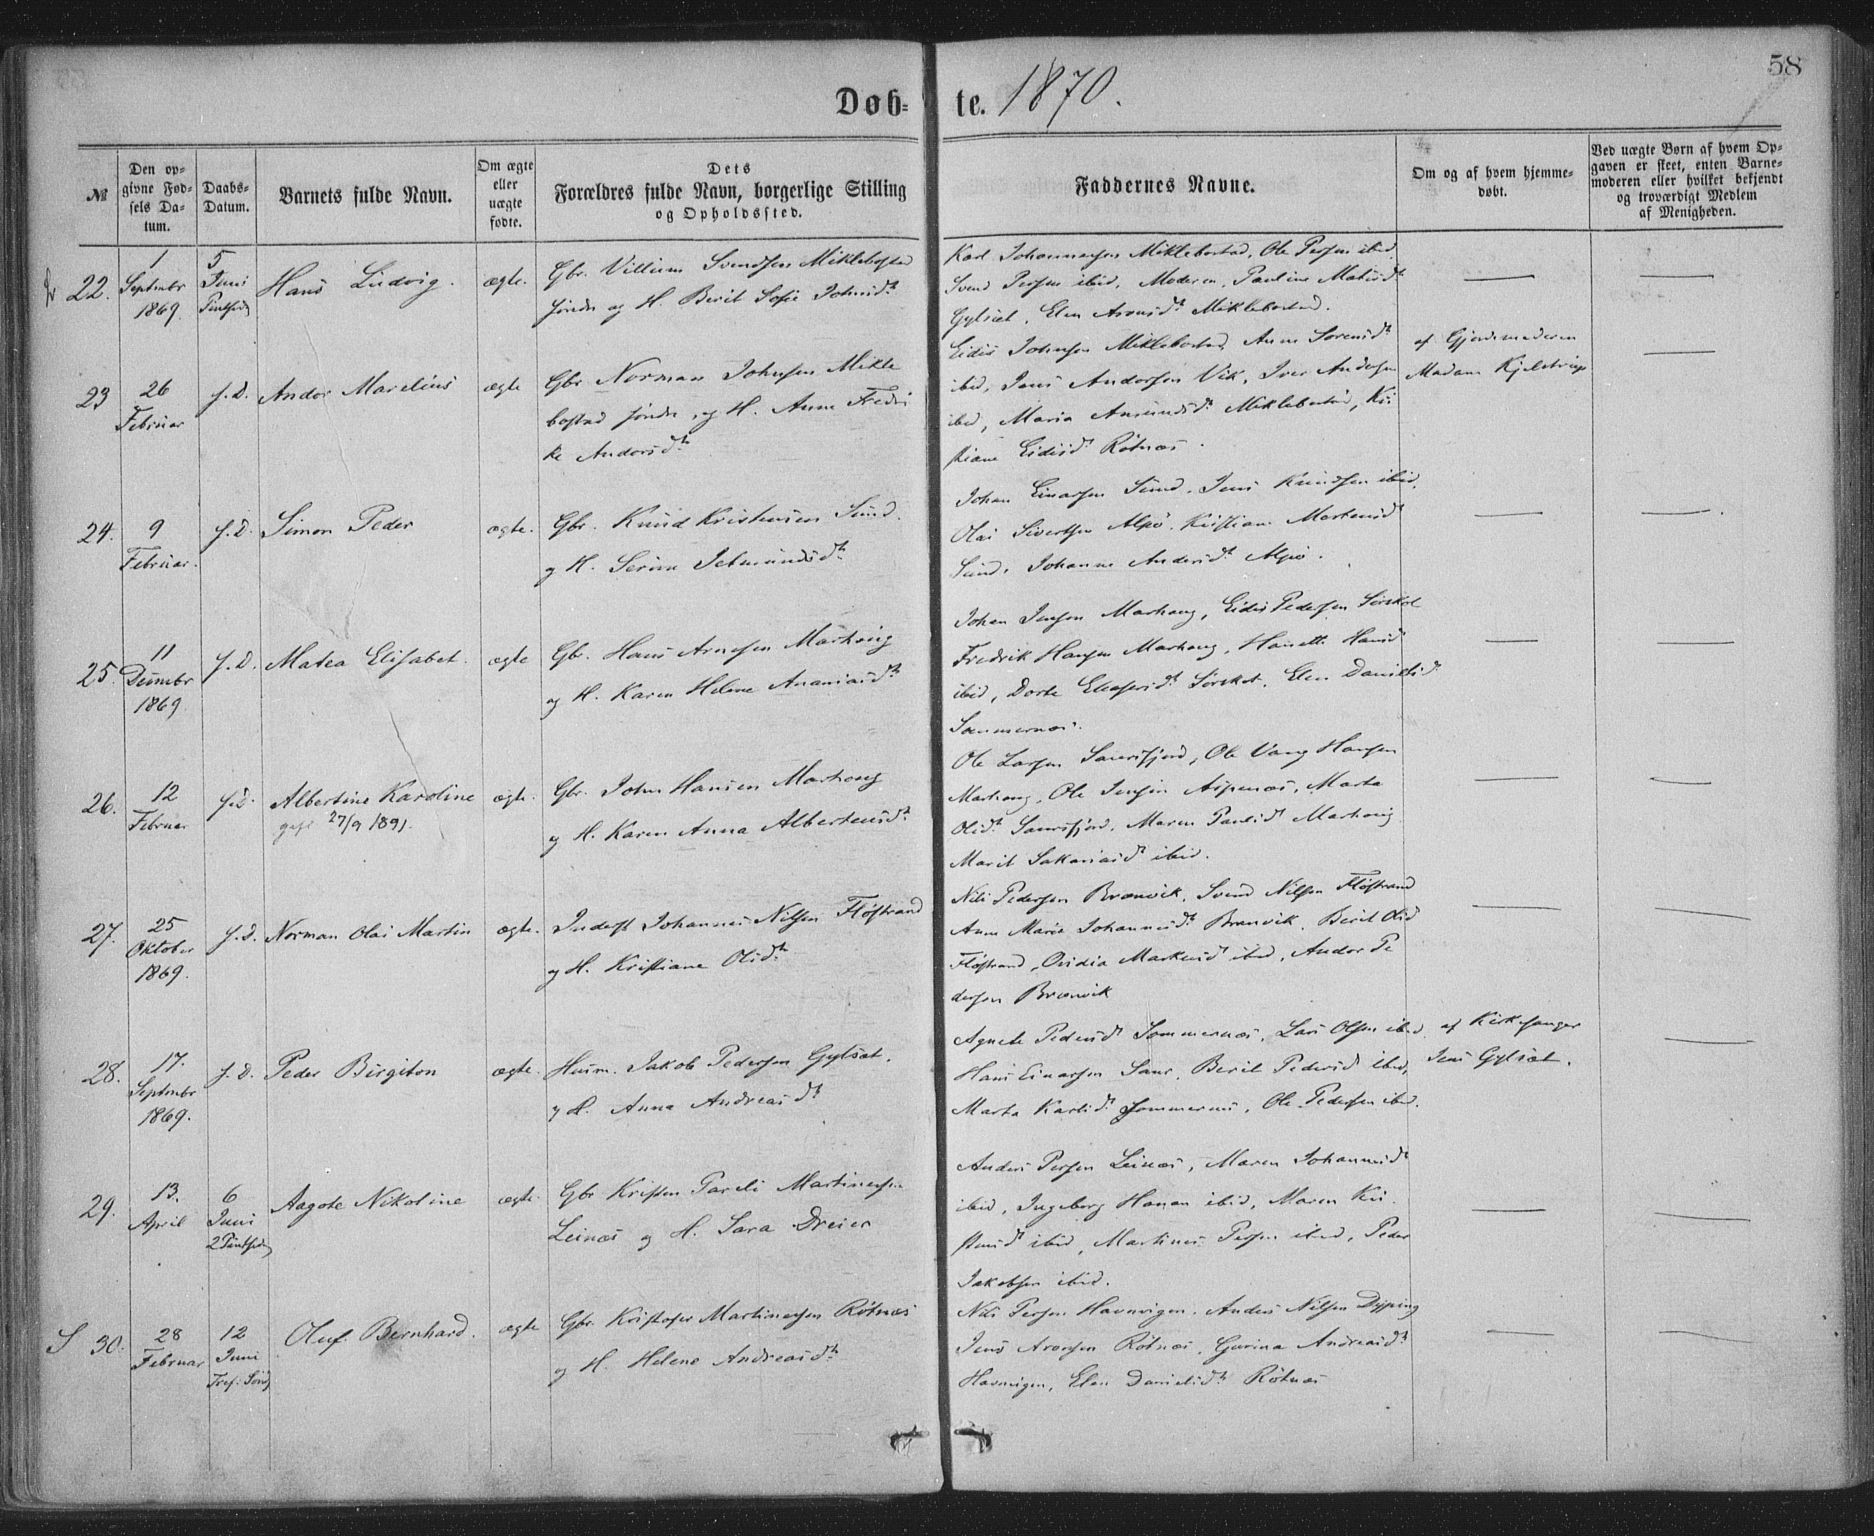 58
Døb- te. 1870.
№
Den op-
givne Fød-
sels Da-
tum.
Daabs-
Datum.
Barnets fulde Navn.
Om ægte
eller
uægte
fødte.
Dets
Forældres fulde Navn, borgerlige Stilling
og Opholdssted.
Faddernes Navne.
Om og af hvem hjemme-
døbt.
Ved uægte Børn af hvem Op-
gaven er skeet, enten Barne-
moderen eller hvilket bekjendt
og troværdigt Medlem
af Menigheden.
22.
1
Septmbr
1869.
5
Juni
Hans Ludvig.
ægte.
Gbr. Villum Svendsen Miklebostad
og H. Berit Sofie Johnsdtr
Karl Johannesen Miklebostad, Ole Persen ibid.
Svend Persen ibid, Moderen, Pauline
Gylset, Elen Miklebostad.
23
26
Februar
f. D.
Andor Marelius
ægte
Gbr Norman Johnsen Mikle
bostad og H. Anne Fredri
ke Andorsdtr
Eidis Johnsen Miklebostad, Anne Sorensdtr
ibid, Jens Andorsen Vik, Iver Andorsen
ibid, Maria Amundsdtr Miklebostad, Kri
stiane Eidisd Rötnæs.
af Gjordemoderen
Madam Kjelstrup
24.
9
Februar.
f. D.
Simon Peder
ægte.
Gbr. Knud Kristensen Sund.
og H. Serine Jetmundsdtr
Johan Einarsen Sund. Jens Knudsen ibid,
Olai Sivertsen Alpö. Kristiane Martensd
Sund, Johanne Andersdtr Alpö.
25.
11
Decmbr
1869
f. D.
Matea Elisabet.
ægte
Gbr. Hans Arnesen Marhaug
og H. Karen Helene Ananiasdtr
Johan Jensen Marhaug, Eidis Pedersen Sörskot
Fredrik Hansen Marhaug, Hanette Hansd
ibid, Dorte Sörskot, Elen Danielsd
Sommernæs.
26.
12
Februar
f. D.
Albertine Karoline
27/9 1891.
ægte.
Gbr. John Hansen Marhaug
og H. Karen Anna Albertsdtr
Ole Larsen Saursfjord, Ole Vang Hansen
Marhaug, Ole Jensen Aspenæs, Marta
Olsdtr Saursfjord, Maren Paulsdtr Marhaug
Marit Sakariasd ibid.
27.
25
Oktober
1869.
f. D.
Norman Olai Martin
ægte.
Inderst Johannes Nilsen Flöstrand
og H. Kristiane Olsdtr
Nils Pedersen Brænvik, Svend Nilsen Flöstrand
Anne Maria Johannesdtr Brænvik, Berit Olsd
Flöstrand, Ovidia ibid, Andor Pe
dersen Brænvik
28.
17.
Septmbr
1869.
f. D.
Peder Birgiton
ægte.
Husm. Jakob Pedersen Gylset.
og H. Anna Andreasdtr
Agnete Pedersd Sommernæs, Lars Olsen ibid,
Hans Einarsen Saur, Berit Pedersd ibid,
Marta Karlsdtr Sommernæs, Ole Pedersen ibid.
af Kirkesanger
Jens Gylset.
29.
13.
April
6
Juni
Aagote Nikoline
ægte.
Gbr Kristen Pareli Martinessen
Leines og H. Sara Dreier
Anders Persen Leines, Maren Johannesdtr
ibid, Ingeborg Hanan ibid, Maren Kri
stensd ibid, Martines Persen ibid, Peder
Jakobsen ibid.
S 30.
28
Februar
12
Juni
Oluf Bernhard.
ægte
Gbr Kristofer Martinessen Rötnæs
og H. Helene Andreasdtr
Nils Persen Havnvigen, Anders Nilsen Dyping
Jens Aronsen Rötnæs, Gurina Andreasdtr
Havnvigen, Elen Danielsdtr Rötnæs